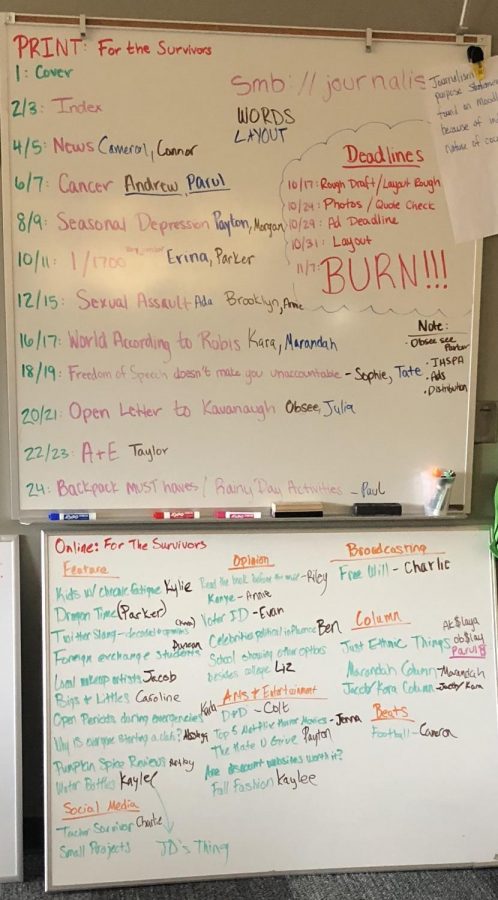 PRINT: For the Survivors
1: Cover
2/3: Index
4/5: News Cameron, Connor
6/7: Cancer Andrew, Parul
8/9: Seasonal Depression Payton, Morgan
10/11: 1/1700 Erina, Parker
12/15: Sexual Assault Ada Brooklyn, Annie
16/17: World According to Robis Kara, Marandah
18/19: Freedom of Speech doesn't make you unaccountable - Sophie, Tate
20/21: Open Letter to Kavanaugh Obsee, Julia
22/23: A+E Taylor
24: Backpack MUST haves / Rainy Day Activities - Paul
smb://journalis
WORDS
LAYOUT
Deadlines
10/17: Rough Draft/Layout Rough
10/24: Photos / Quote Check
10/29: Ad Deadline
10/31: Layout
11/7: BURN!!!
Note:
• Obsee see Parker
• IHSPA
• Ads
• Distribution
Journalism
purpose
found on
because of
nature of
EXPO
EXPO
Online: For The Survivors
Feature
Kids w/ Chronic fatigue Kylie
Dragon Time (Parker)
Twitter Slang -
Foreign exchange students Duncan
Local makeup artists Jacob
Bigs + Littles Caroline
Open Periods during emergencies Kara
Why is everyone starting a club?
Pumpkin Spice Reviews
Water Bottles Kaylee
Social Media
Teacher Survivor Charlie
Small Projects
JD's Thing
Opinion
Read the book before the movie - Riley
Kanye - Annie
Voter ID - Evan
Celebrities political influence Ben
School showing other options
besides college Liz
Arts + Entertainment
D+D - Colt
Top 5 Netflix Horror Movies - Jenna
The Hate U Give Payton
Are discount websites worth it?
Fall Fashion Kaylee
Broadcasting
Free Will - Charlie
Column
Just Ethnic Things
Marandah Column - Marandah
Jacob/Kara Column - Jacob/Kara
Beats
Football - Cameron